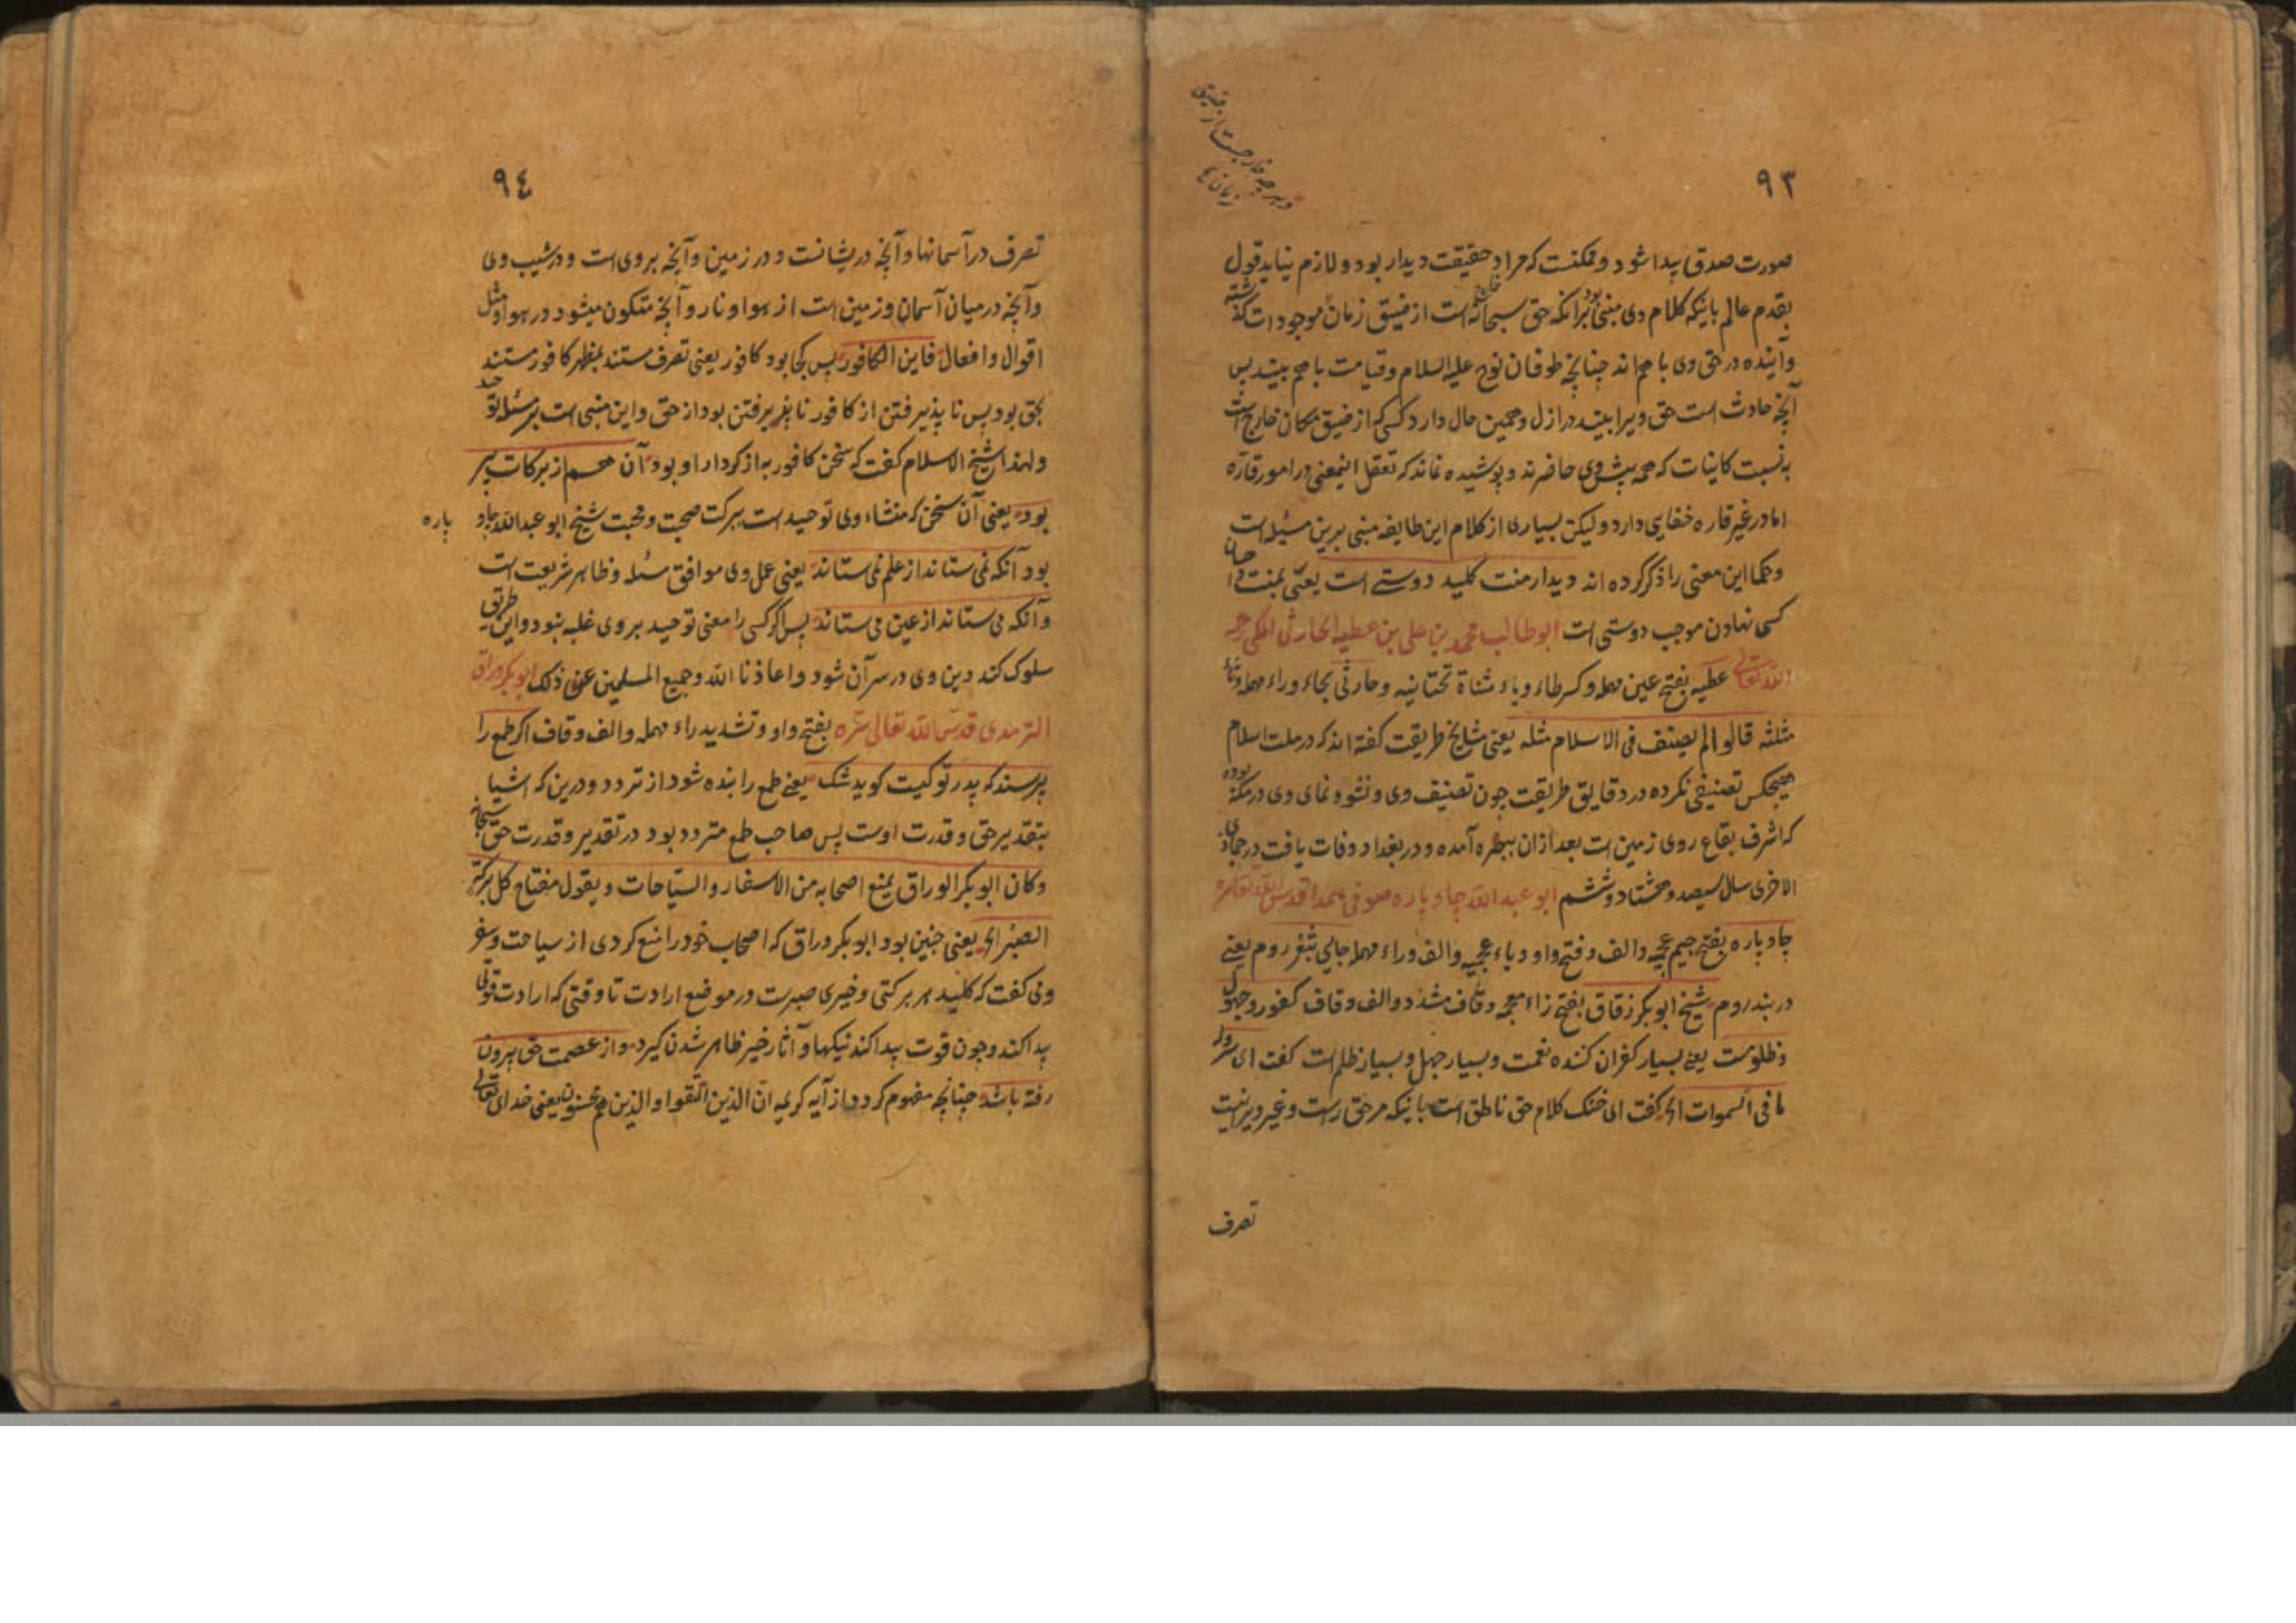 ٩٣
صورت صدق پیدا شود و ممکنست که مراد حقیقت دیدار بود و لازم نیاید قول
بقدم عالم بانکه کلام وی مبنی بود برانکه حق سبحانه خارج است از ضیق زمان موجودات گذشته
و آینده در حق وی با هم اند چنانچه طوفان نوح علیه السلام و قیامت با هم بیند پس
آنچه حادث است حق ویرا بیند در ازل و همین حال دارد کسی که از ضیق مکان خارج است
به نسبت کاینات که همه پیش وی حاضرند و پوشیده نماند که تعقل اینمعنی در امور قاره
اما در غیر قاره خفایی دارد و لیکن بسیاری از کلام این طایفه مبنی برین مسئله است
و حکما این معنی را ذکر کرده اند دیدار منت کلید دوستی است یعنی منت احسان
کسی نهادن موجب دوستی است ابو طالب محمد بن علی بن عطیه الحارثی المکی رحمه
الله تعالی عطیه بفتح عین مهمله و کسر طاء و یاء مثناة تحتانیه و حارثی بحاء و راء مهمله و ثاء
مثلثه قالوا لم یصنف فی الاسلام مثله یعنی مشایخ طریقت گفته اند که در ملت اسلام
هیچکس تصنیفی نکرده در دقایق طریقت چون تصنیف وی و نشو و نمای وی در مکه بوده
که اشرف بقاع روی زمین است بعد ازان ببصره آمده و در بغداد وفات یافت در جمادی
الاخری سال سیصد و هشتاد و ششم ابو عبد الله چاوپاره صوفی همدانی قدس الله تعالی سره
چاوپاره بفتح جیم عجمیه و الف و فتح واو و باء عجمیه و الف و راء مهمله جایی ثغر روم یعنی
دربند روم شیخ ابوبکر زقاق بفتح زاء معجمه و قاف مشدد و الف و قاف کفور و جهول
و ظلومست یعنی بسیار کفران کننده نعمت و بسیار جهل و بسیار ظلم است گفت ای
ما فی السموات الخ گفت ای خنک کلام حق ناطق است بانکه مر حق راست و غیر ویرا نیست
تصرف
٩٤
تصرف در آسمانها و آنچه در یشانست و در زمین و آنچه بروی است و در شیب وی
و آنچه در میان آسمان و زمین است از هوا و نار و آنچه متکون میشود در هوا و مثل
اقوال و افعال فاین الکافور پس کجا بود کافور یعنی تصرف مستند بمظهر کافور مستند
بحق بود پس نا پذیرفتن از کافور نا پذیرفتن بود از حق و این مبنی است بر مسئله توحید
و لهذا شیخ الاسلام گفت که سخن کافور به از کردار او بود آن هم از برکات پیر
بود یعنی آن سخن که منشاء وی توحید است ببرکت صحبت و محبت شیخ ابو عبد الله چاو
پاره
بود آنکه می ستاند از علم می ستاند یعنی عمل وی موافق مسئله و ظاهر شریعت است
و آنکه می ستاند از عین می ستاند پس اگر کسی را معنی توحید بر وی غلبه نبود و این طریق
سلوک کند دین وی در سر آن شود و اعاذنا الله و جمیع المسلمین عن ذلک ابوبکر وراق
الترمذی قدس الله تعالی سره بفتح واو و تشدید راء مهمله و الف و قاف اگر طمع را
پرسند که پدر تو کیست گوید شک یعنی طمع را بنده شود از تردد و درین که اشیا
بتقدیر حق و قدرت اوست پس صاحب طمع متردد بود در تقدیر و قدرت حق سبحانه
و کان ابو بکر الوراق یمنع اصحابه من الاسفار و السیاحات و یقول مفتاح کل برکة
الصبر الخ یعنی چنین بود ابو بکر وراق که اصحاب خود را منع کردی از سیاحت و سفر
و می گفت که کلید هر برکتی و خیری صبرست در موضع ارادت تا وقتی که ارادت قوتی
پیدا کند و چون قوت پیدا کند نیکیها و آثار خیر ظاهر شدن گیرد و از عصمت حق بیرون
رفته باشد چنانچه مفهوم گردد از آیه کریمه ان الذین اتقوا و الذین هم محسنون یعنی خدای تعالی